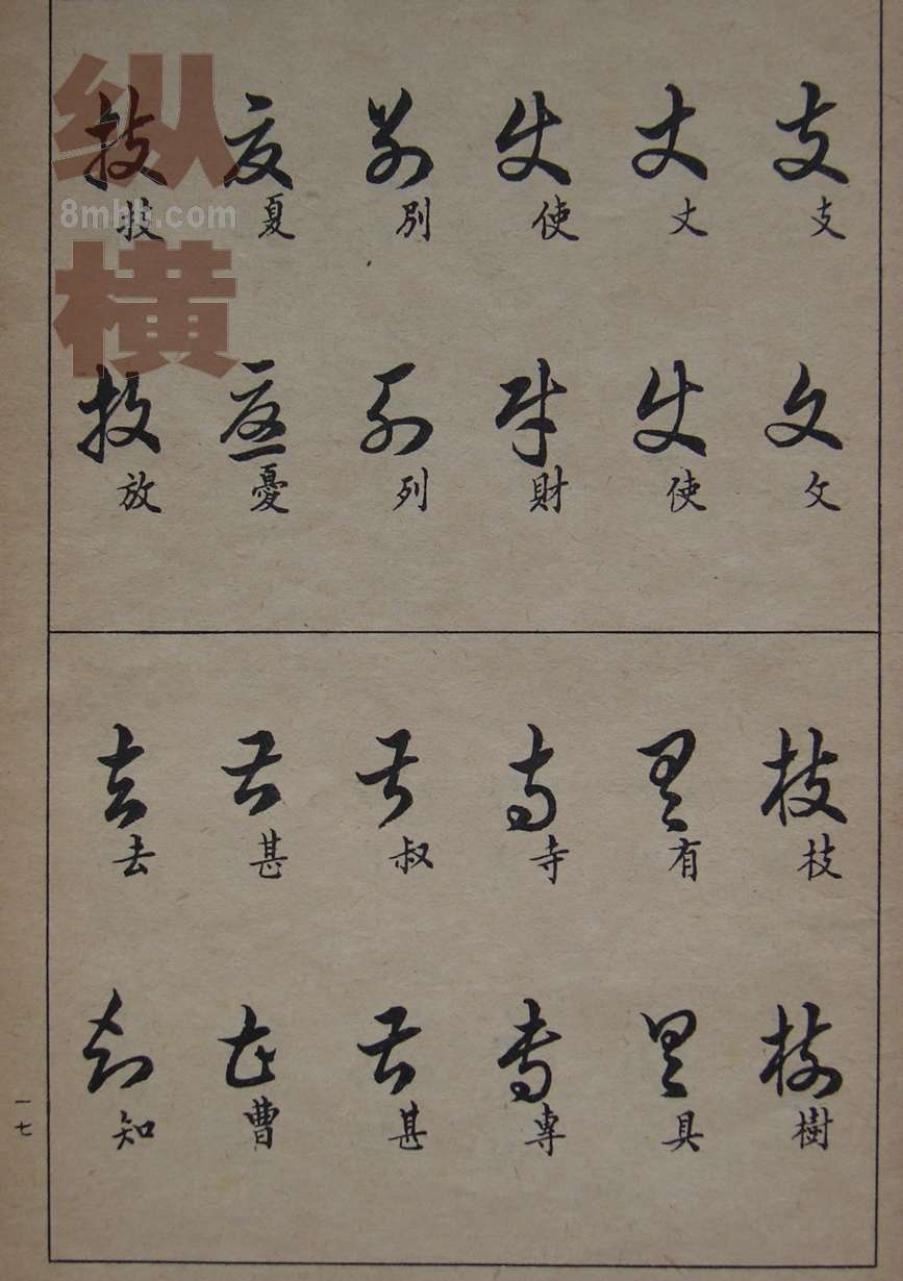 支 文
丈 使
使 財
別 列
夏 憂
技 放
枝 樹
有 具
寺 專
叔 甚
甚 曹
去 知
一七
纵横